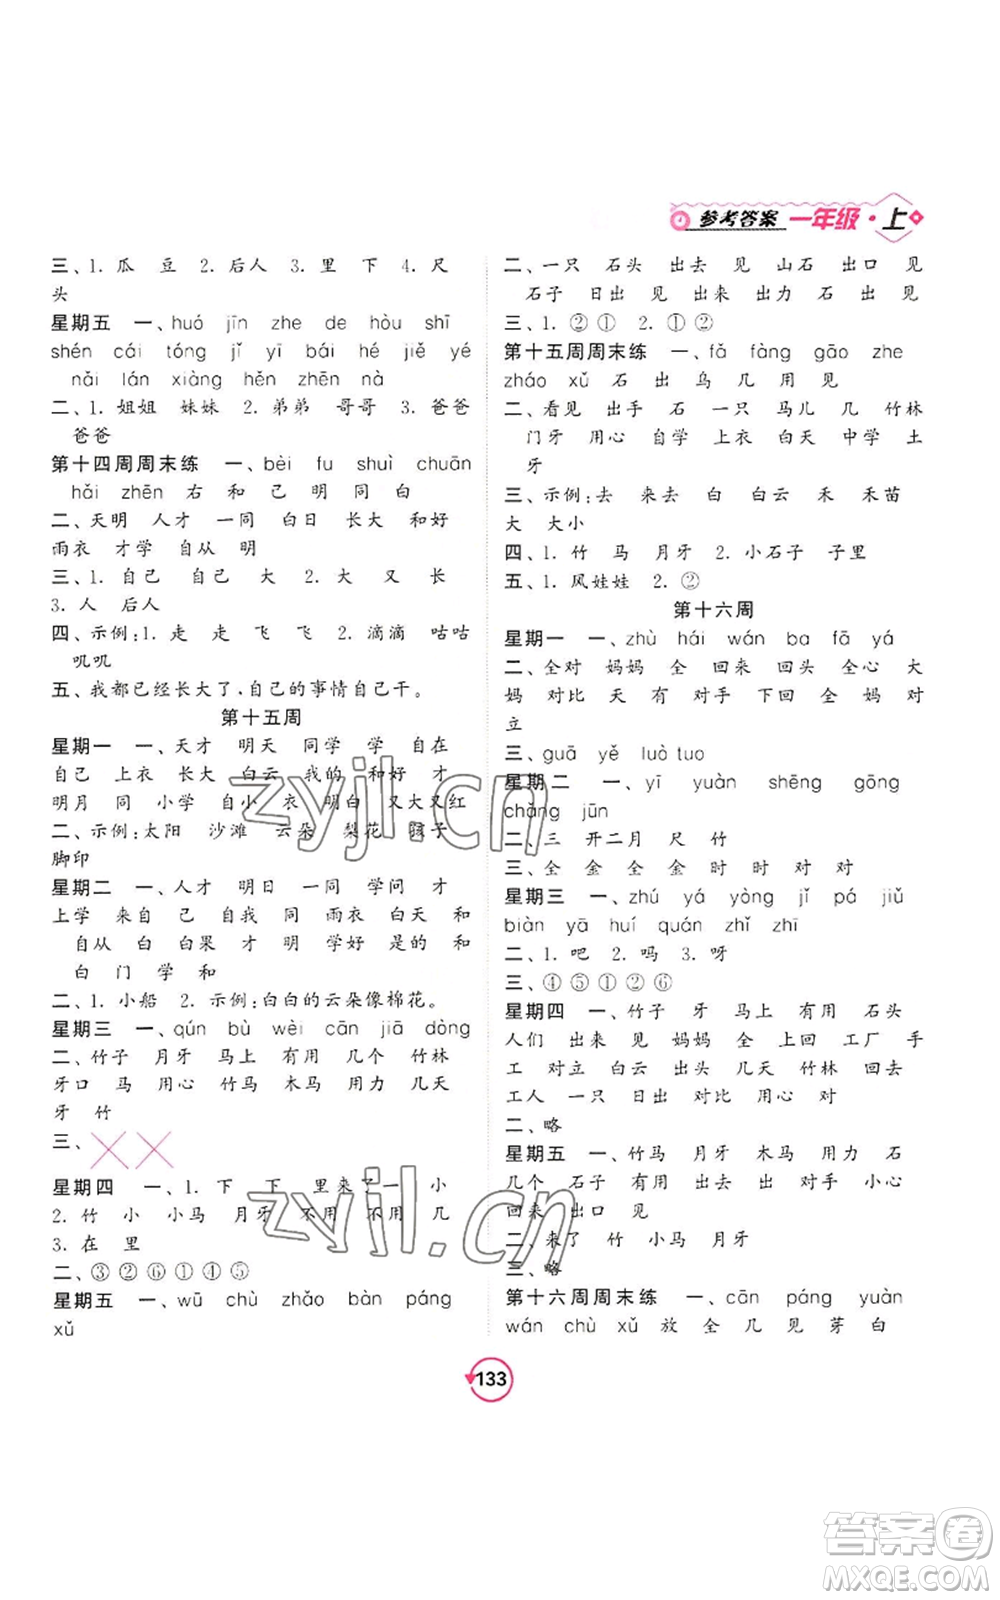 参考答案 一年级·上
三、1. 瓜 豆 2. 后人 3. 里 下 4. 尺
头
星期五 一、huó jīn zhe de hòu shī
shén cái tóng jǐ yí bái hé jiě yé
nǎi lán xiàng hěn zhēn nà
二、1. 姐姐 妹妹 2. 弟弟 哥哥 3. 爸爸
爸爸
第十四周周末练 一、bèi fu shuì chuān
hǎi zhēn 右 和 己 明 同 白
二、天明 人才 一同 白日 长大 和好
雨衣 才学 自从 明
三、1. 自己 自己 大 2. 大 又 长
3. 人 后人
四、示例:1. 走 走 飞 飞 2. 滴滴 咕咕
叽叽
五、我都已经长大了,自己的事情自己干。
第十五周
星期一 一、天才 明天 同学 学 自在
自己 上衣 长大 白云 我的 和好 才
明月 同 小学 自小 衣 明白 又大又红
二、示例:太阳 沙滩 云朵 梨花 孩子
脚印
星期二 一、人才 明日 一同 学问 才
上学 来自 己 自我 同 雨衣 白天 和
自从 白 白果 才 明 学好 是的 和
白 门 学 和
二、1. 小船 2. 示例:白白的云朵像棉花。
星期三 一、qún bù wèi cān jiā dòng
二、竹子 月牙 马上 有用 几个 竹林
牙口 马 用心 竹马 木马 用力 几天
牙 竹
三、
星期四 一、1. 下 下 里来了一 小
2. 竹 小 小马 月牙 不用 不用 几
3. 在 里
二、③②⑥①④⑤
星期五 一、wū chù zhǎo bàn páng
xǔ
二、一只 石头 出去 见 山石 出口 见
石子 日出 见 出来 出力 石 出 见
三、1. ②① 2. ①②
第十五周周末练 一、fǎ fàng gāo zhe
zháo xǔ 石 出 鸟 几 用 见
二、看见 出手 石 一只 马儿 几 竹林
门牙 用心 自学 上衣 白天 中学 土
牙
三、示例:去 来去 白 白云 禾 禾苗
大 大小
四、1. 竹 马 月牙 2. 小石子 子里
五、1. 风娃娃 2. ②
第十六周
星期一 一、zhù hái wán ba fā yá
二、全对 妈妈 全 回来 回头 全心 大
妈 对比 天 有 对手 下回 全 妈 对
立
三、guā yě luò tuo
星期二 一、yī yuàn shēng gōng
chǎng jūn
二、三 开二月 尺 竹
三、全 金 全 金 时 时 对 对
星期三 一、zhú yá yòng jǐ pá jiǔ
biàn yā huí quán zhǐ zhī
二、1. 吧 2. 吗 3. 呀
三、④⑤①②⑥
星期四 一、竹子 牙 马上 有用 石头
人们 出来 见 妈妈 全 上回 工厂 手
工 对立 白云 出头 几天 竹林 回去
工人 一只 日出 对比 用心 对
二、略
星期五 一、竹马 月牙 木马 用力 石
几个 石子 有用 出去 出 对手 小心
回来 出口 见
二、来了 竹 小马 月牙
三、略
第十六周周末练 一、cān páng yuàn
wán chù xǔ 放 全 几 见 芽 白
133
zyjl.cn
zyjl.cn
答案圈
MXQE.COM